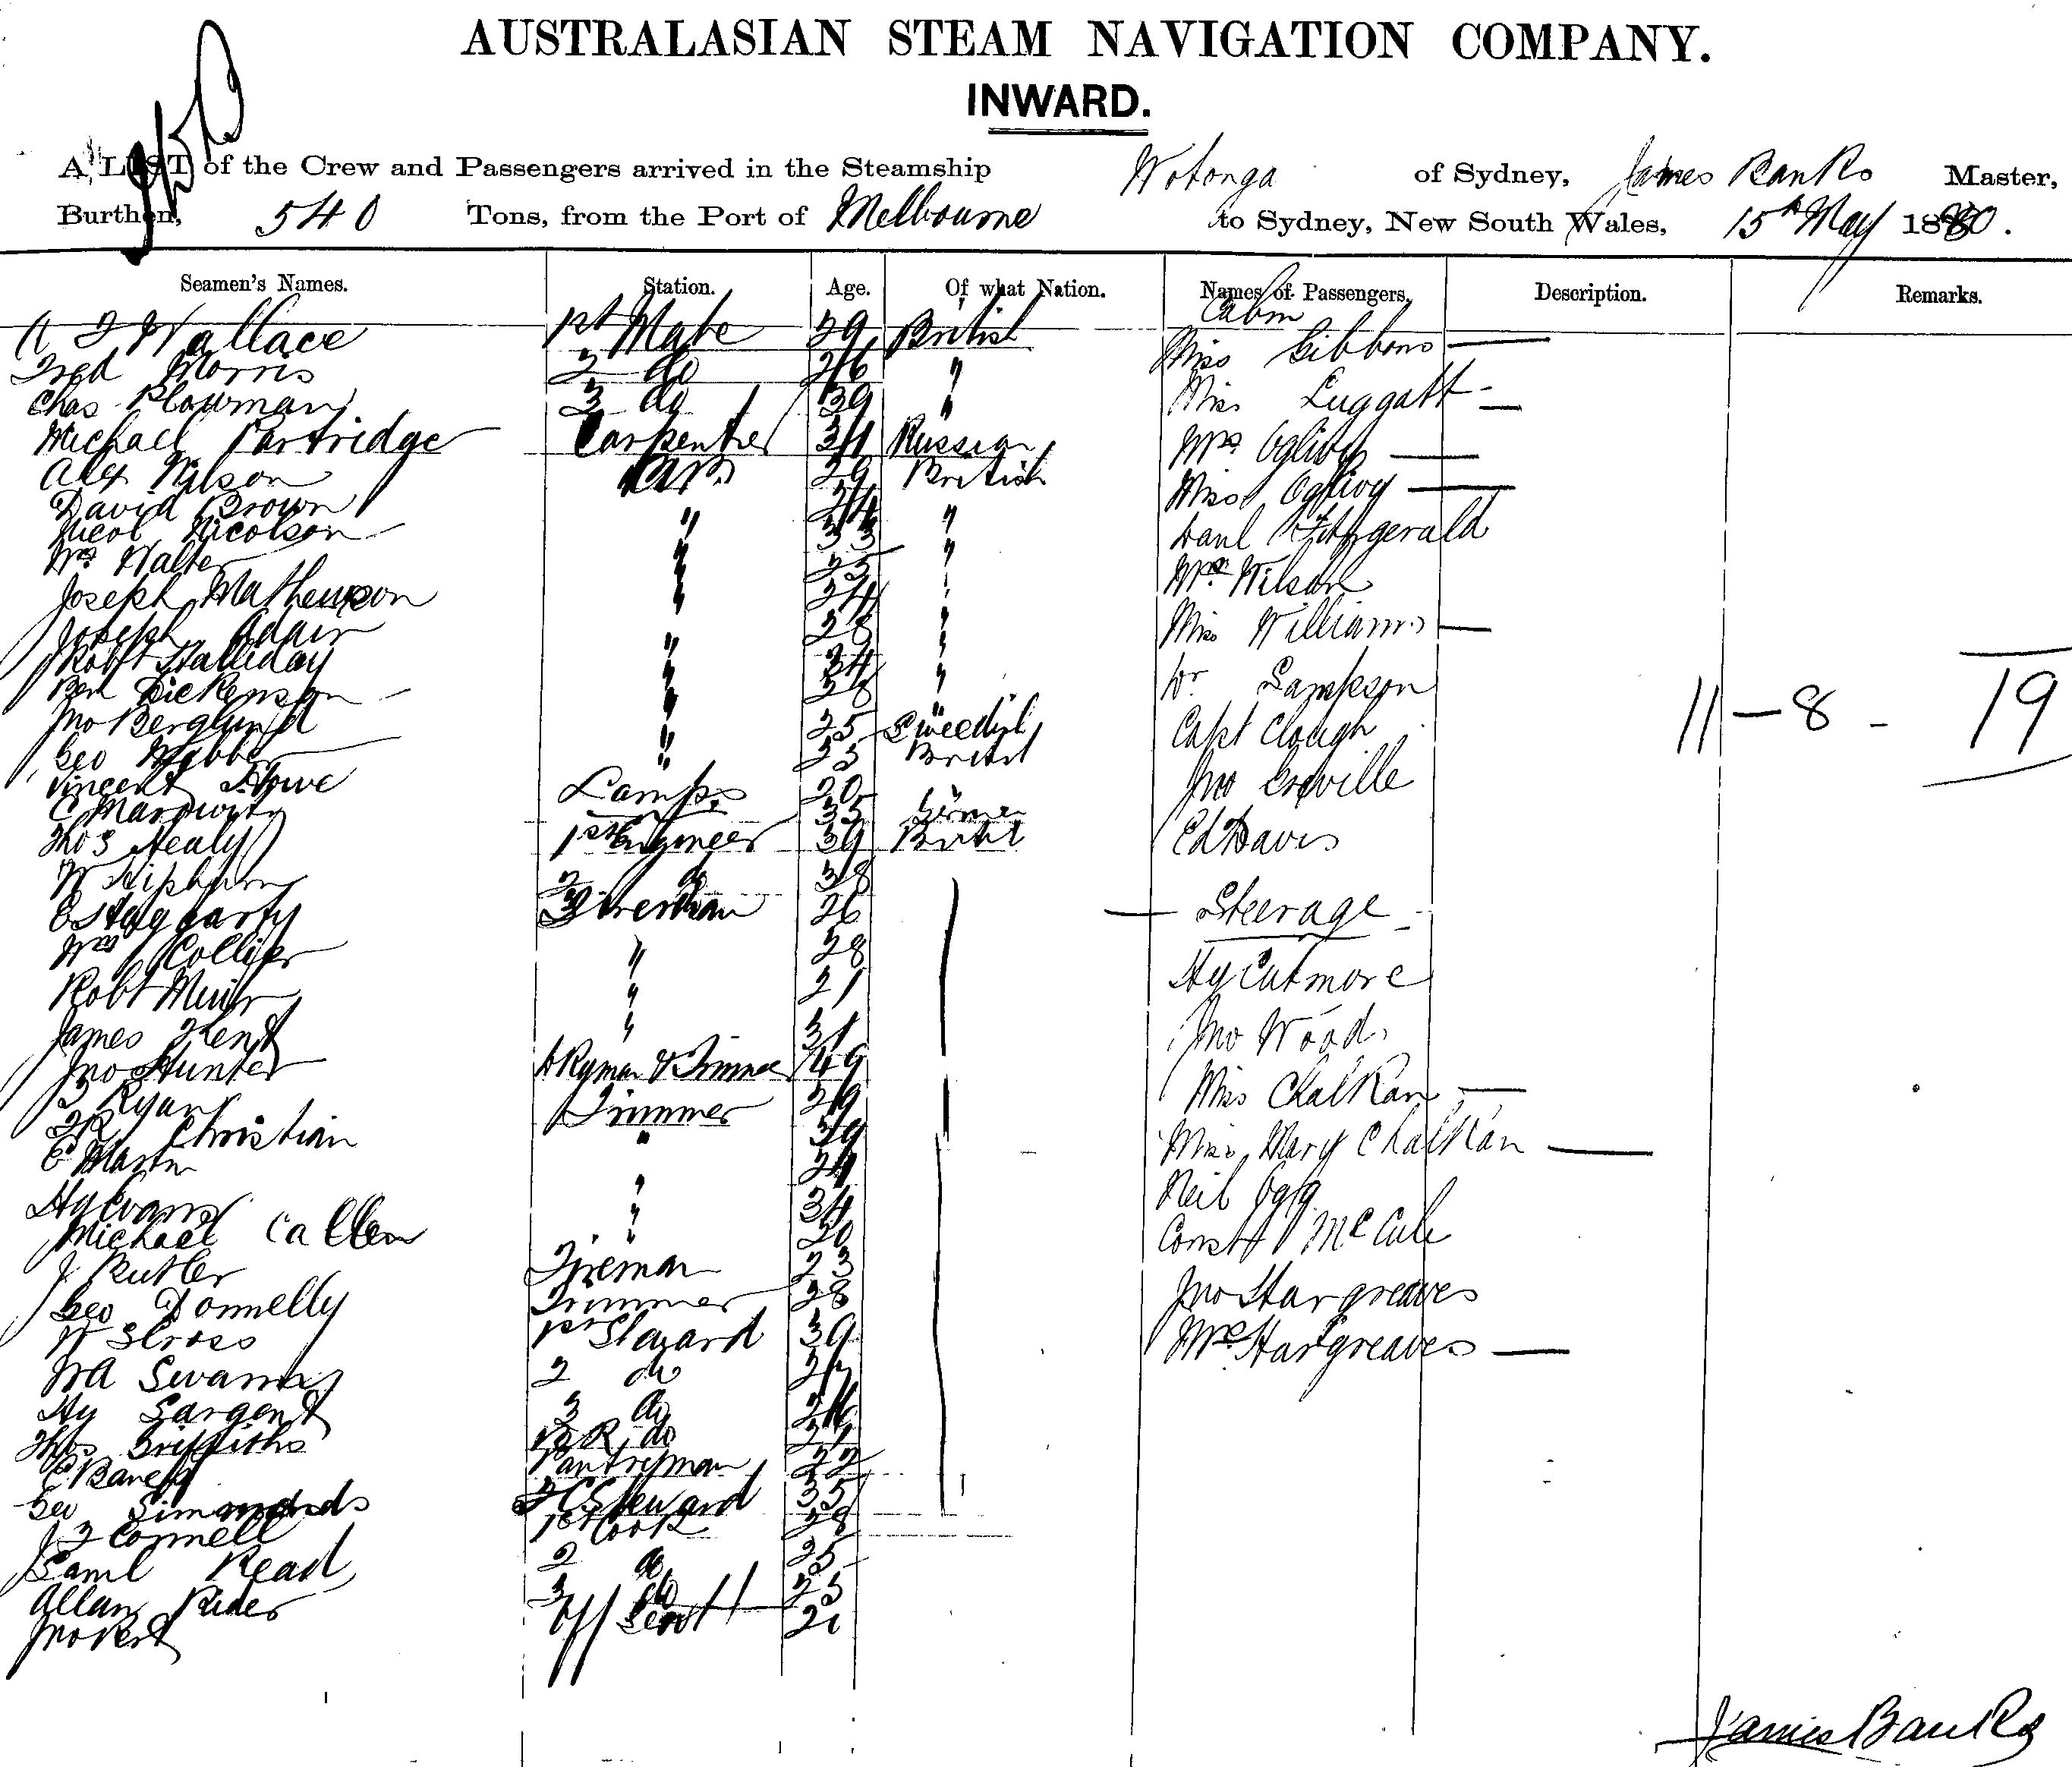 AUSTRALASIAN STEAM NAVIGATION COMPANY.
INWARD.
A LIST of the Crew and Passengers arrived in the Steamship Wotonga of Sydney, James Banks Master,
Burthen, 540 Tons, from the Port of Melbourne to Sydney, New South Wales, 15th May 1880.
Seamen's Names. Station. Age. Of what Nation. Names of Passengers. Description. Remarks.
Cabin
Wallace 1st Mate 29 British Miss Gibbons
Fred Morris 2 do 26 " Miss Luggatt
Chas Plowman 3 do 39 " Mrs Ogilivy
Michael Partridge Carpenter 34 Russian Miss Ogilivy
Alex Nilson AB 29 British Danl Fitzgerald
David Brown 24 Mrs Wilson
Nicol Nicolson " 33 " Miss Williams
Wm Walter " 25 " Dr Sampson
Joseph Mathewson " 24 " Capt Clough
Joseph Adair " 28 " Jno Greville
Robt Halliday " 34 " Ed Davis
Ben Dickenson " 28 "
Jno Berglund " 25 Sweedish
Geo Webber " 23 British
Vincent Howe Lamps 20 "
C 35 German
Thos Healy 1st Engineer 39 British
W Hipburn 2 do 38
E Haggarty Fireman 26 Steerage
Wm Collier " 28 Hy Cutmore
Robt Muir " 21 Jno Wood
James Kent " 31 Miss Chalkan
Jno Hunter Dkyman & Trimmer 49 Miss Mary Chalkan
Ryan Trimmer 29 Neil Ogg
Christian " 39 Const McCule
E Martin 24 Jno Hargreaves
Hy Evans " 34 Mrs Hargreaves
Michael Callen " 20
J Butler Fireman 23
Geo Donnelly Trimmer 28
W Scross 1st Steward 39
Swann 2 do
Hy Sargent 3 do 26
Thos Griffiths do 21
Pantryman 22
Geo Simmonds Steward 35
J F Connell 1st Cook 28
Saml Read 2 do 25
Allan Rider 3 do 23
Jno 21
11 - 8 - 19
James Banks